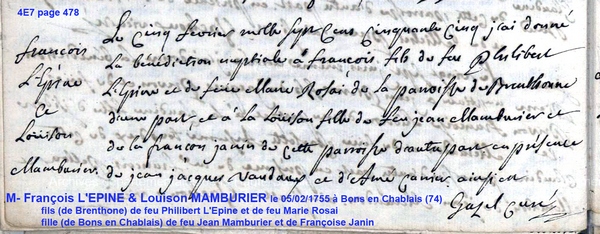 4E7 page 478
françois
L'Epine
Louison
Mamburier
Le Cinq fevrier mille sept Cens Cinquante Cinq j'ai donné
La bénédiction nuptiale a françois fils de feu philibert
L'Epine et de feüe Marie Rosai de la parroisse de Brenthonne
d'une part, et à la Louison fille de feu jean Mamburier et
de la françoise janin de cette parroisse d'autre part en présence
de jean jacques et d'Aimé janin ainsi est
curé
M- François L'EPINE & Louison MAMBURIER le 05/02/1755 à Bons en Chablais (74)
fils (de Brenthone) de feu Philibert L'Epine et de feu Marie Rosai
fille (de Bons en Chablais) de feu Jean Mamburier et de Françoise Janin